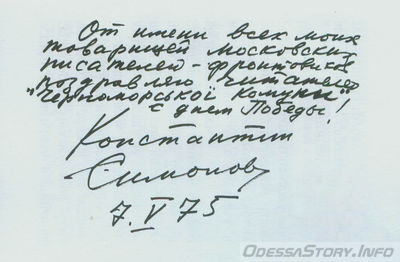 От имени всех моих
товарищей московских
писателей-фронтовиков
поздравляю читателей
"Чорноморської комуни"
с днем Победы!
Константин
Симонов
7. V 75
OdessaStory.Info